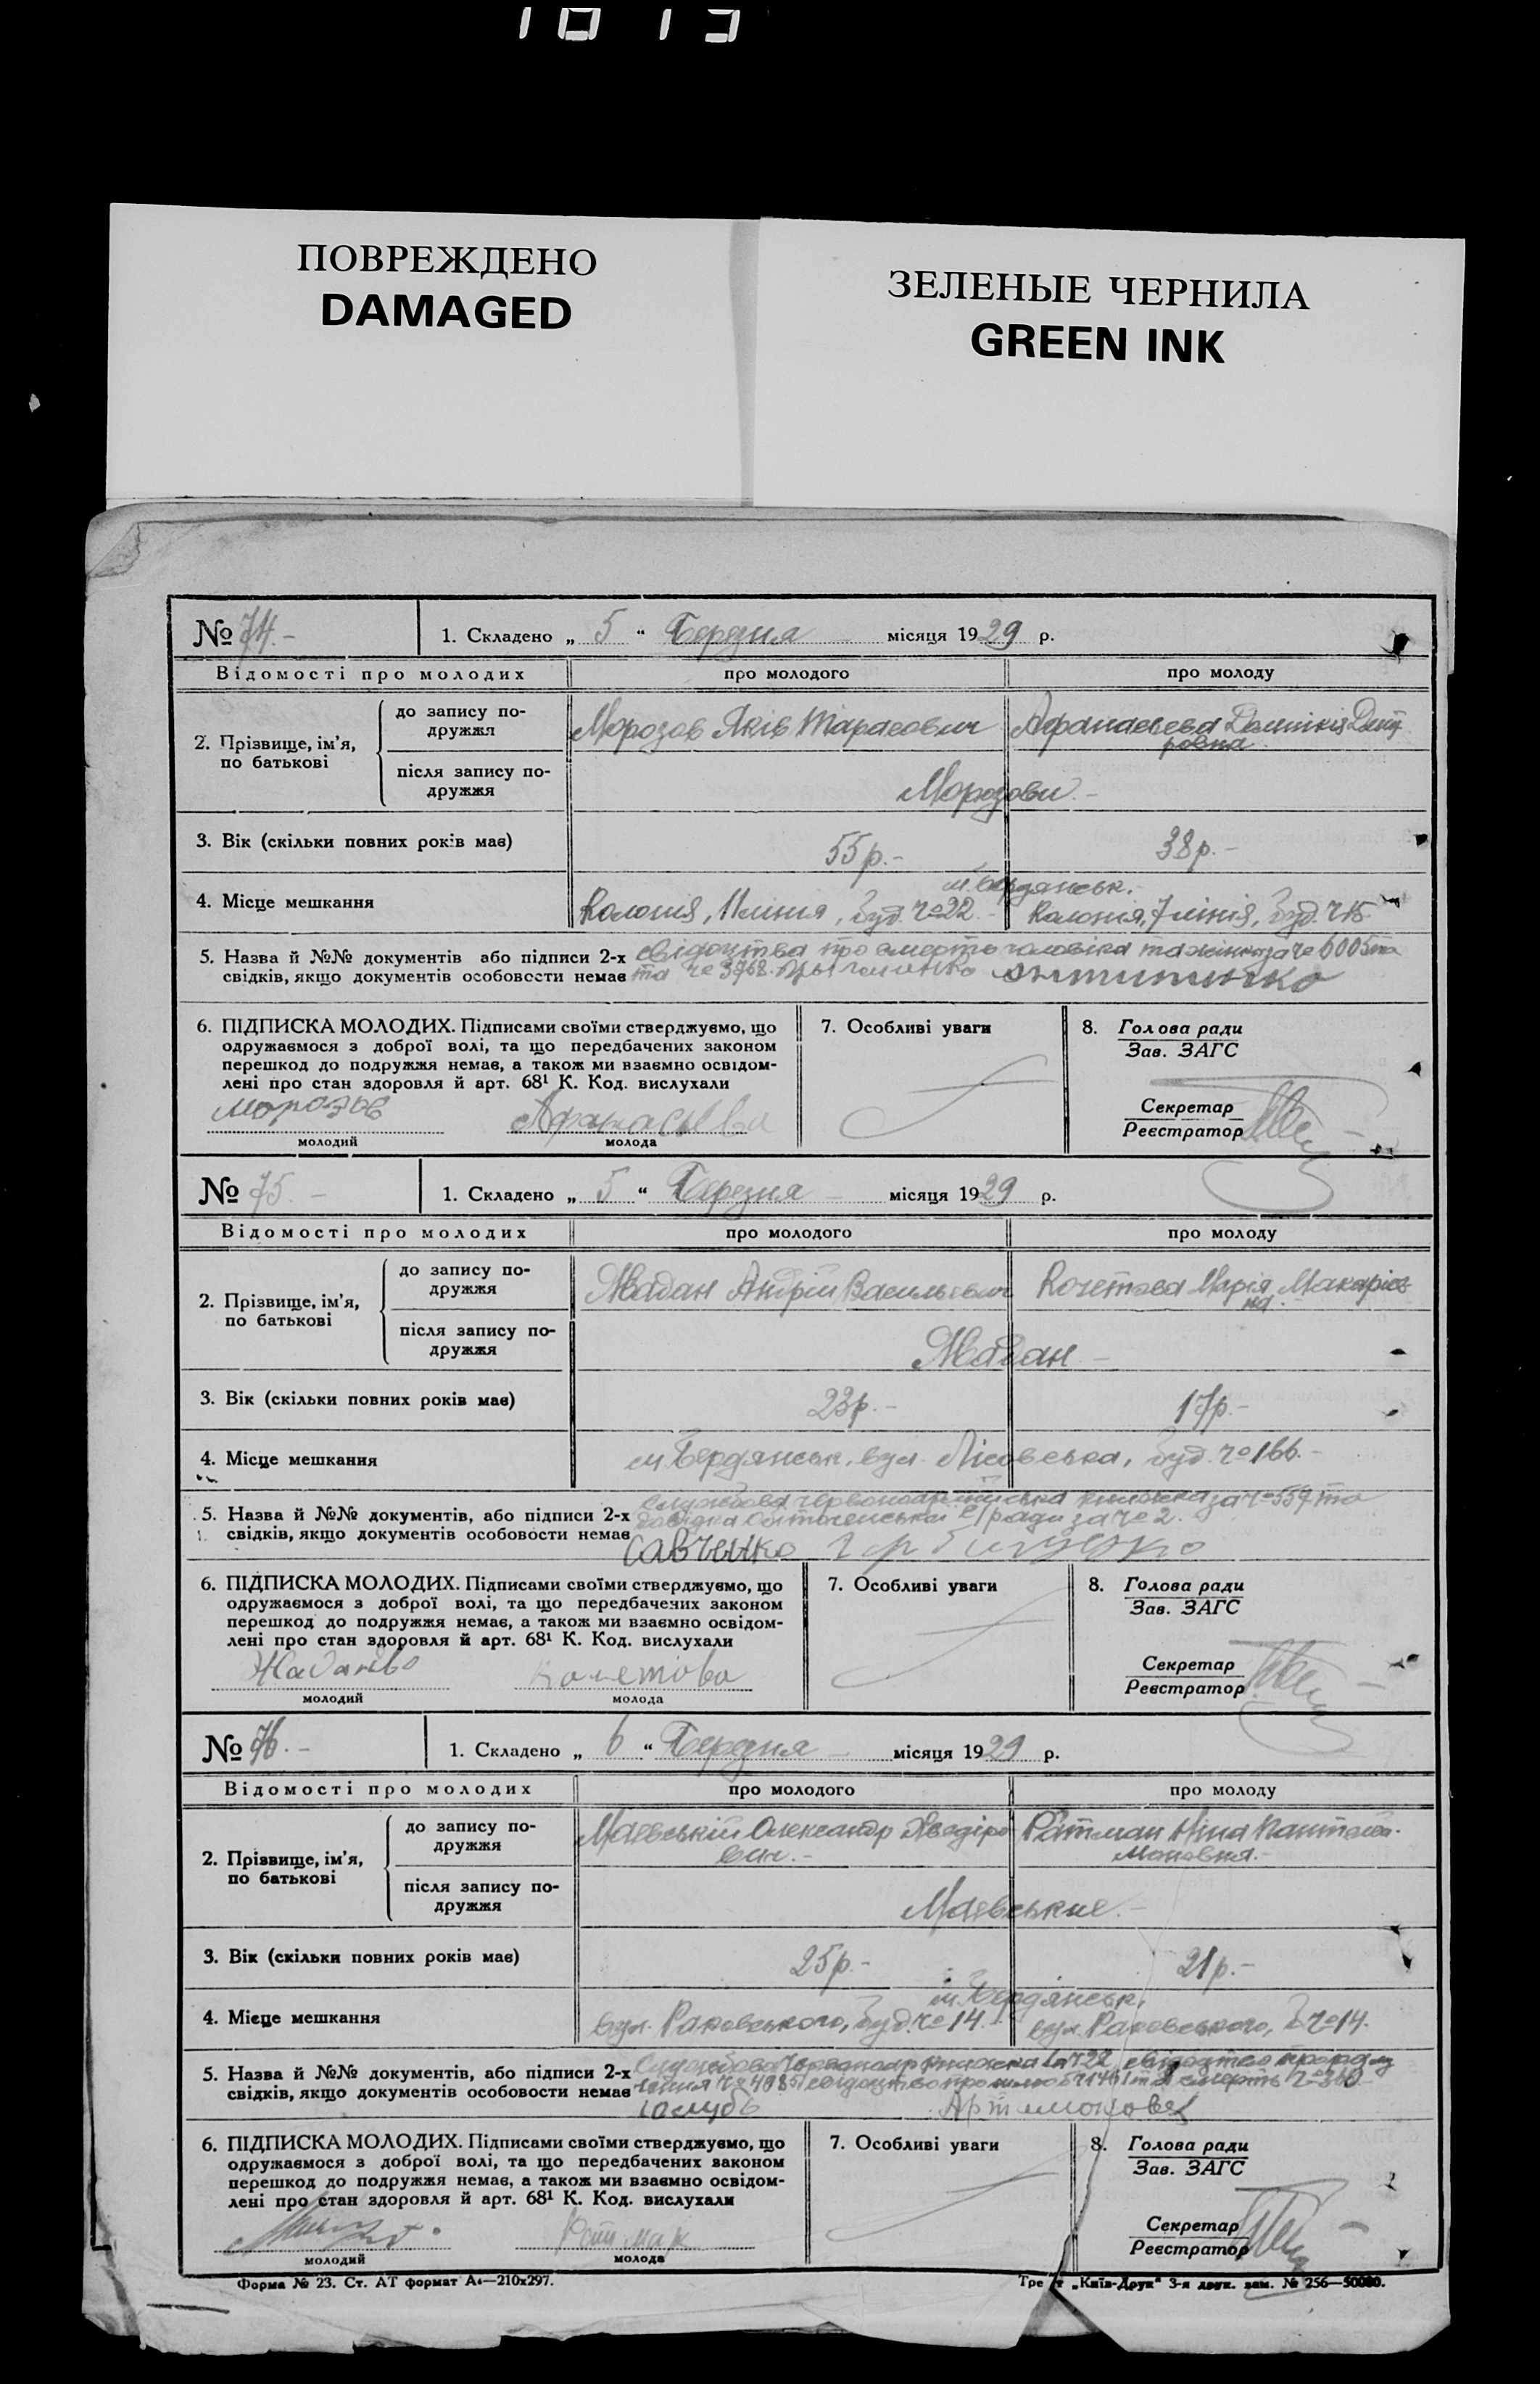 1013
ПОВРЕЖДЕНО
DAMAGED
ЗЕЛЕНЫЕ ЧЕРНИЛА
GREEN INK
№ 74.- 1. Складено „ 5 “ Березня місяця 1929 р.
Відомості про молодих про молодого про молоду
2. Прізвище, ім’я, по батькові
до запису подружжя Морозов Яків Тарасович Афанасьєва Дмит
ровна
після запису подружжя Морозови.-
3. Вік (скільки повних років має) 55 р.- 38 р.-
м. Бердянськ.
4. Місце мешкання Колонія, 11 лінія, буд. № 22.- Колонія, 7 лінія, буд. № 15.-
5. Назва й №№ документів або підписи 2-х свідоцтва про смерть чоловіка та жінки за № 6005 та
свідків, якщо документів особовости немає та № 3768.
6. ПІДПИСКА МОЛОДИХ. Підписами своїми стверджуємо, що
одружаємося з доброї волі, та що передбачених законом
перешкод до подружжя немає, а також ми взаємно освідом-
лені про стан здоровля й арт. 68¹ К. Код. вислухали
Морозов Афанасьєва
молодий молода
7. Особливі уваги
8. Голова ради
Зав. ЗАГС
Секретар
Реєстратор
№ 75.- 1. Складено „ 5 “ Березня місяця 1929 р.
Відомості про молодих про молодого про молоду
2. Прізвище, ім’я, по батькові
до запису подружжя Жадан Андрій Васильевич Кочетова Марія Макарієв
на.
після запису подружжя Жадан -
3. Вік (скільки повних років має) 23 р.- 17 р.-
4. Місце мешкання м. Бердянськ, вул. Лісовська, буд. № 166.-
5. Назва й №№ документів, або підписи 2-х Службова червоноармійська книжка за № 559 та
свідків, якщо документів особовости немає довідка с/ради за № 2.
Савченко
6. ПІДПИСКА МОЛОДИХ. Підписами своїми стверджуємо, що
одружаємося з доброї волі, та що передбачених законом
перешкод до подружжя немає, а також ми взаємно освідом-
лені про стан здоровля й арт. 68¹ К. Код. вислухали
Кочетова
молодий молода
7. Особливі уваги
8. Голова ради
Зав. ЗАГС
Секретар
Реєстратор
№ 76.- 1. Складено „ 6 “ Березня місяця 1929 р.
Відомості про молодих про молодого про молоду
2. Прізвище, ім’я, по батькові
до запису подружжя Маєвський Олександр Ратман Ніна Пантелей-
вич.- моновна.-
після запису подружжя Маевськие.-
3. Вік (скільки повних років має) 25 р.- 21 р.-
м. Бердянськ,
4. Місце мешкання вул. Раковського, буд. № 14. вул. Раковського, б. № 14.
5. Назва й №№ документів, або підписи 2-х Службова червоноар. книжка за № 22, свідоцтво про родж
свідків, якщо документів особовости немає свідоцтво про шлюб та смерть
Голубь Артимонова
6. ПІДПИСКА МОЛОДИХ. Підписами своїми стверджуємо, що
одружаємося з доброї волі, та що передбачених законом
перешкод до подружжя немає, а також ми взаємно освідом-
лені про стан здоровля й арт. 68¹ К. Код. вислухали
Ратман
молодий молода
7. Особливі уваги
8. Голова ради
Зав. ЗАГС
Секретар
Реєстратор
Форма № 23. Ст. АТ формат А4—210х297.
Трест „Київ-Друк“ 3-я друк. зам. № 256—50000.